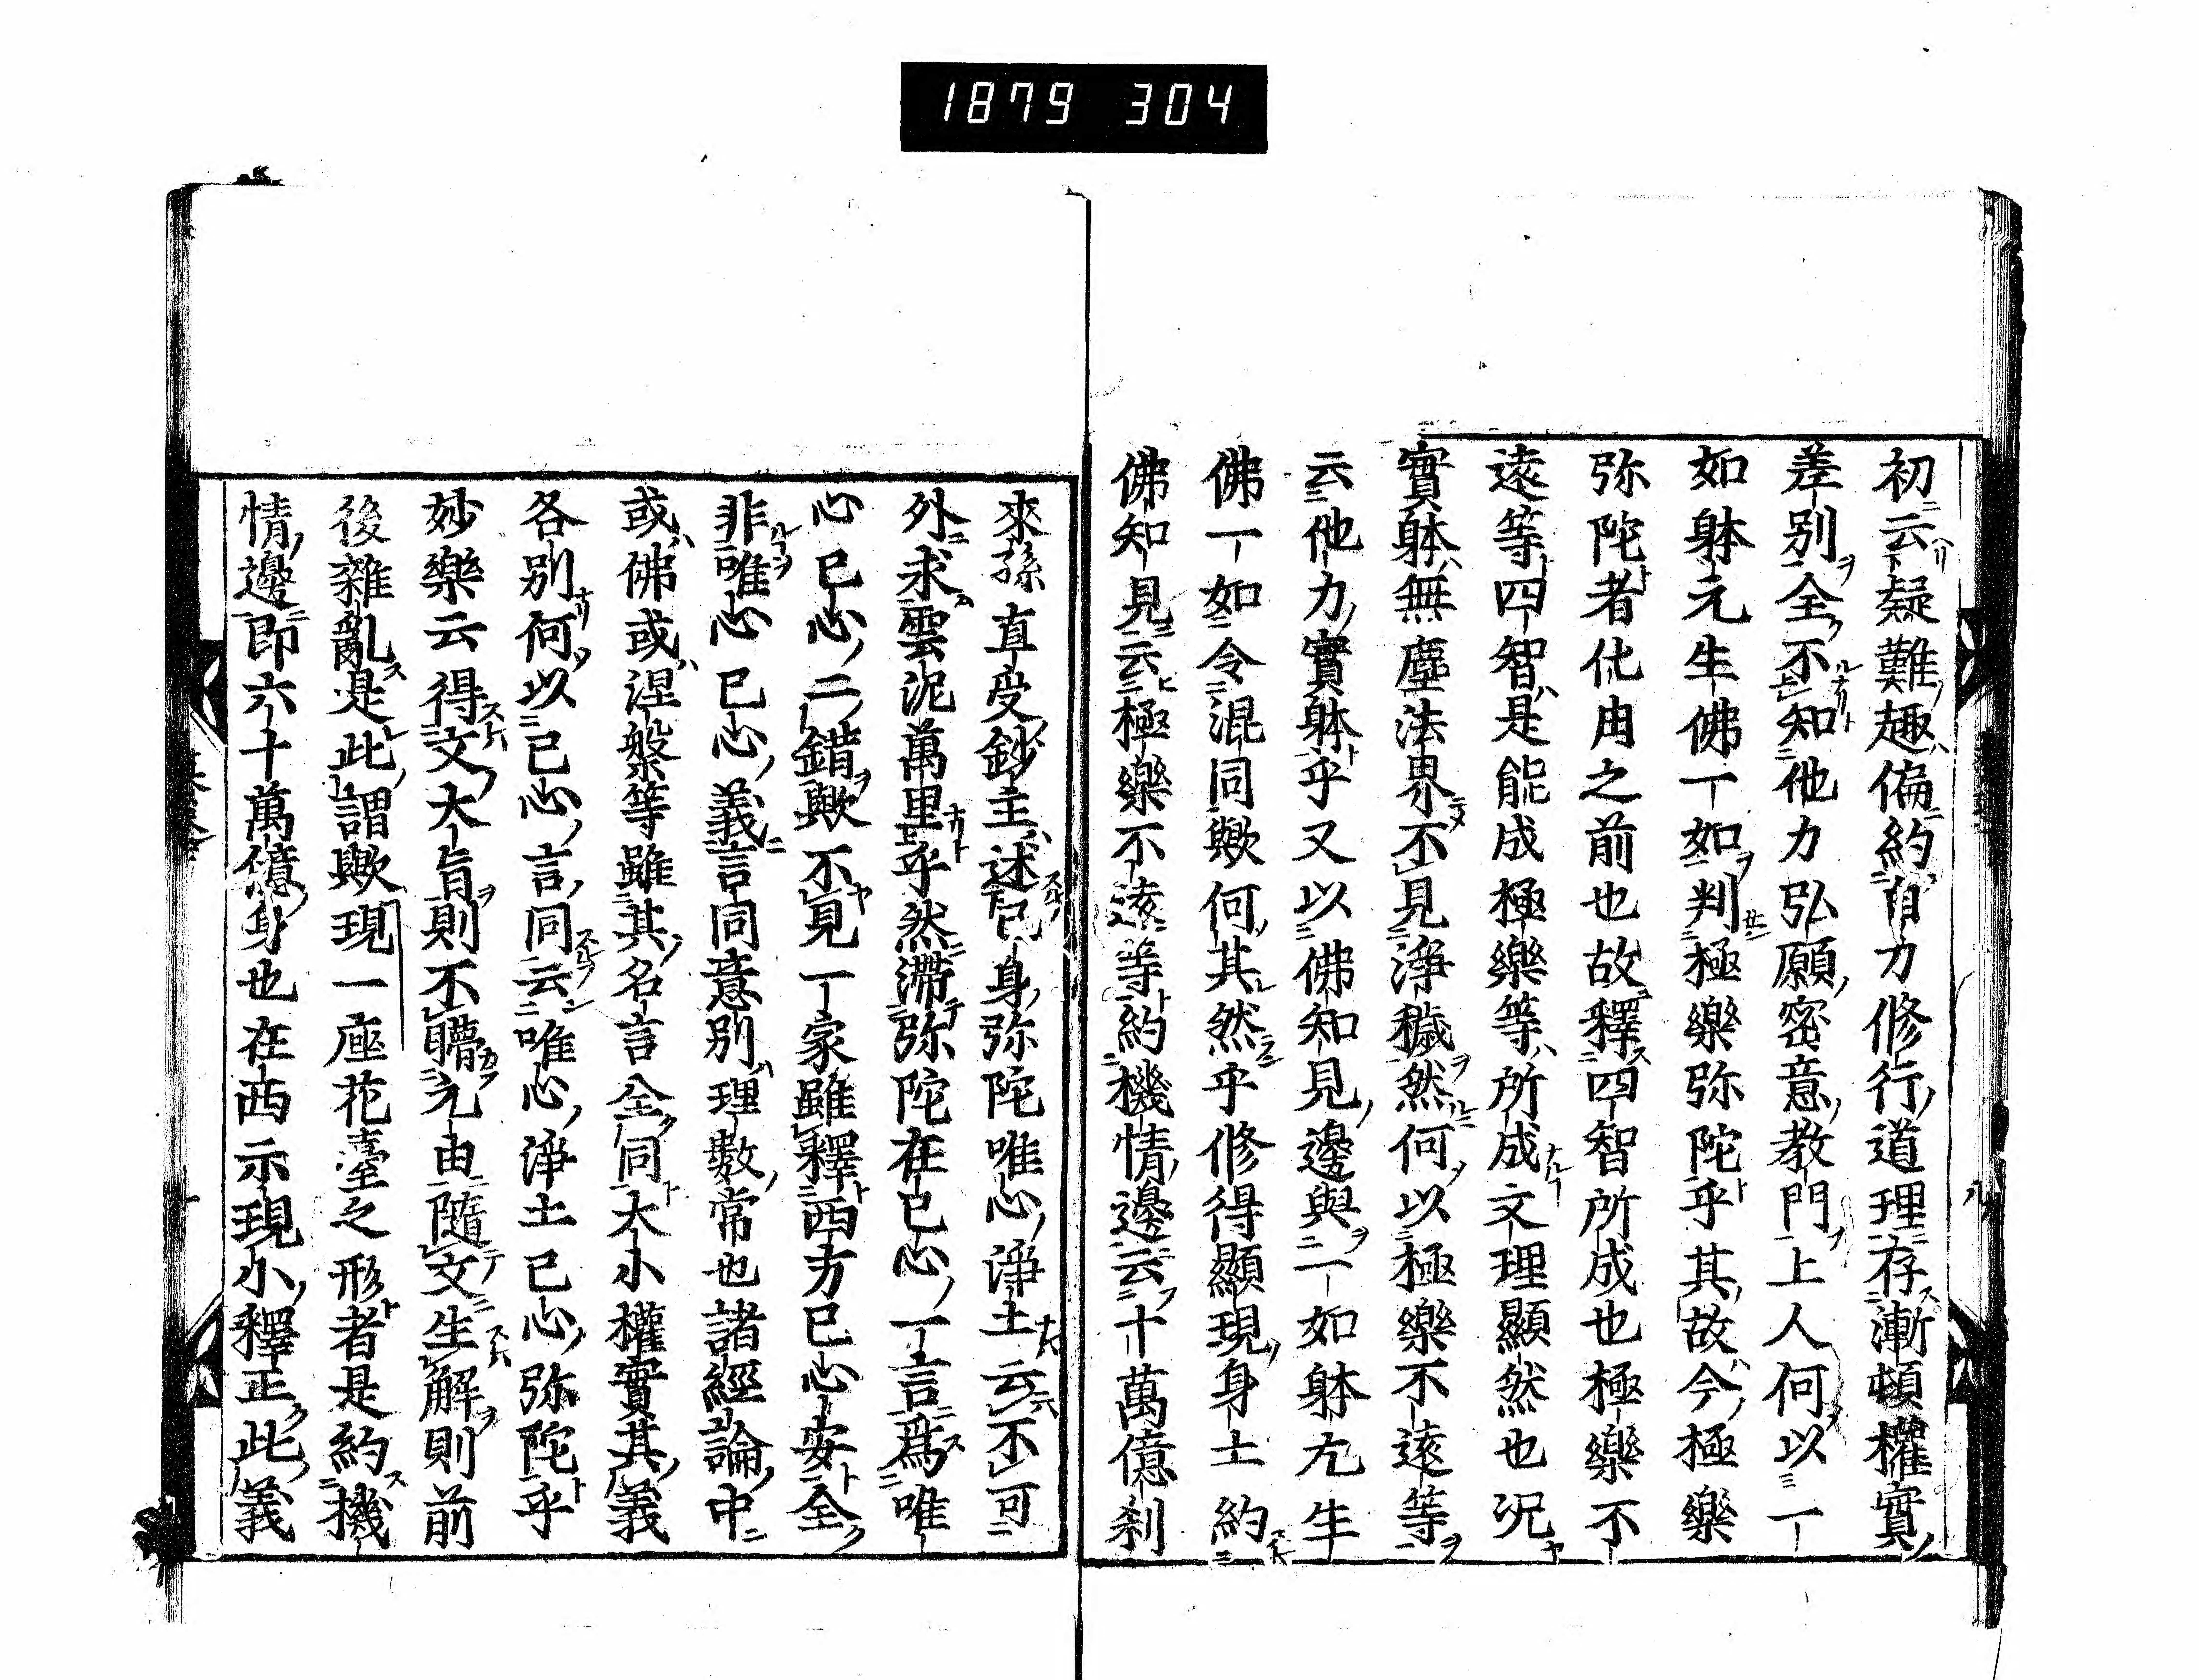 1879 304
初云疑難趣偏約自力修行道理存漸頓權實
差別全不知他力弘願密意教門上人何以一
如躰元生佛一如判極樂弥陀乎其故今極樂
弥陀者仏由之前也故釋四智所成也極樂不
遠等四智是能成極樂等所成文理顯然也况
實躰無塵法界不見淨穢然何以極樂不遠等
云他力實躰乎又以佛知見邊與一如躰九生
佛一如令混同歟何其然乎修得顯現身土約
佛知見云極樂不遠等約機情邊云十萬億刹
來孫直受鈔主述已身弥陀唯心淨土云不可
外求雲泥萬里乎然滯弥陀在已心一言爲唯
心已心二錯歟不見一家雖釋西方已心安全
非唯心已心義言同意別理數常也諸經論中
或佛或涅槃等雖其名言全同大小權實其義
各別何以已心言同云唯心淨土已心弥陀乎
妙樂云得文大旨則不瞢元由隨文生解則前
後雜亂是此謂歟現一座花臺之形者是約機
情邊即六十萬億身也在西示現小釋正此義